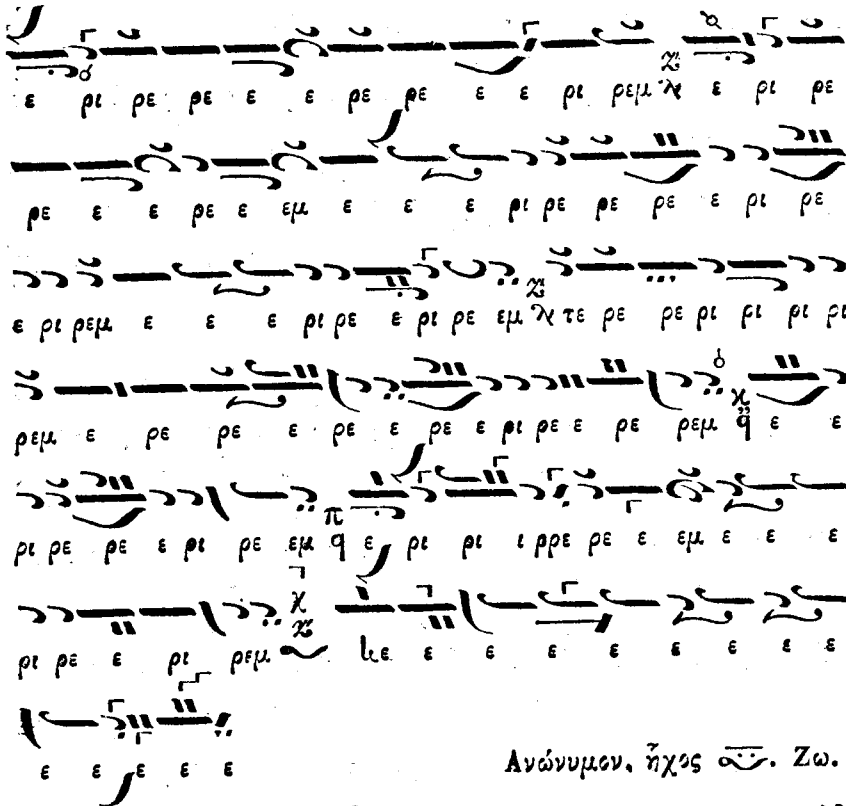 ε ρι ρε ρε ε ε ρε ρε ε ε ρι ρεμ ε ρι ρε
ρε ε ε ρε ε εμ ε ε ε ρι ρε ρε ρε ε ρι ρε
ε ρι ρεμ ε ε ε ρι ρε ε ρι ρε εμ τε ρε ρε ρι ρι ρι ρι
ρεμ ε ρε ρε ε ρε ε ρε ε ρι ρε ε ρε ρεμ ε ε
ρι ρε ρε ε ρι ρε εμ ε ρι ρι ι ρρε ρε ε εμ ε ε ε
ρι ρε ε ρι ρεμ κε ε ε ε ε ε ε ε ε
ε ε ε ε ε
Ανώνυμον, ἦχος Ζω.